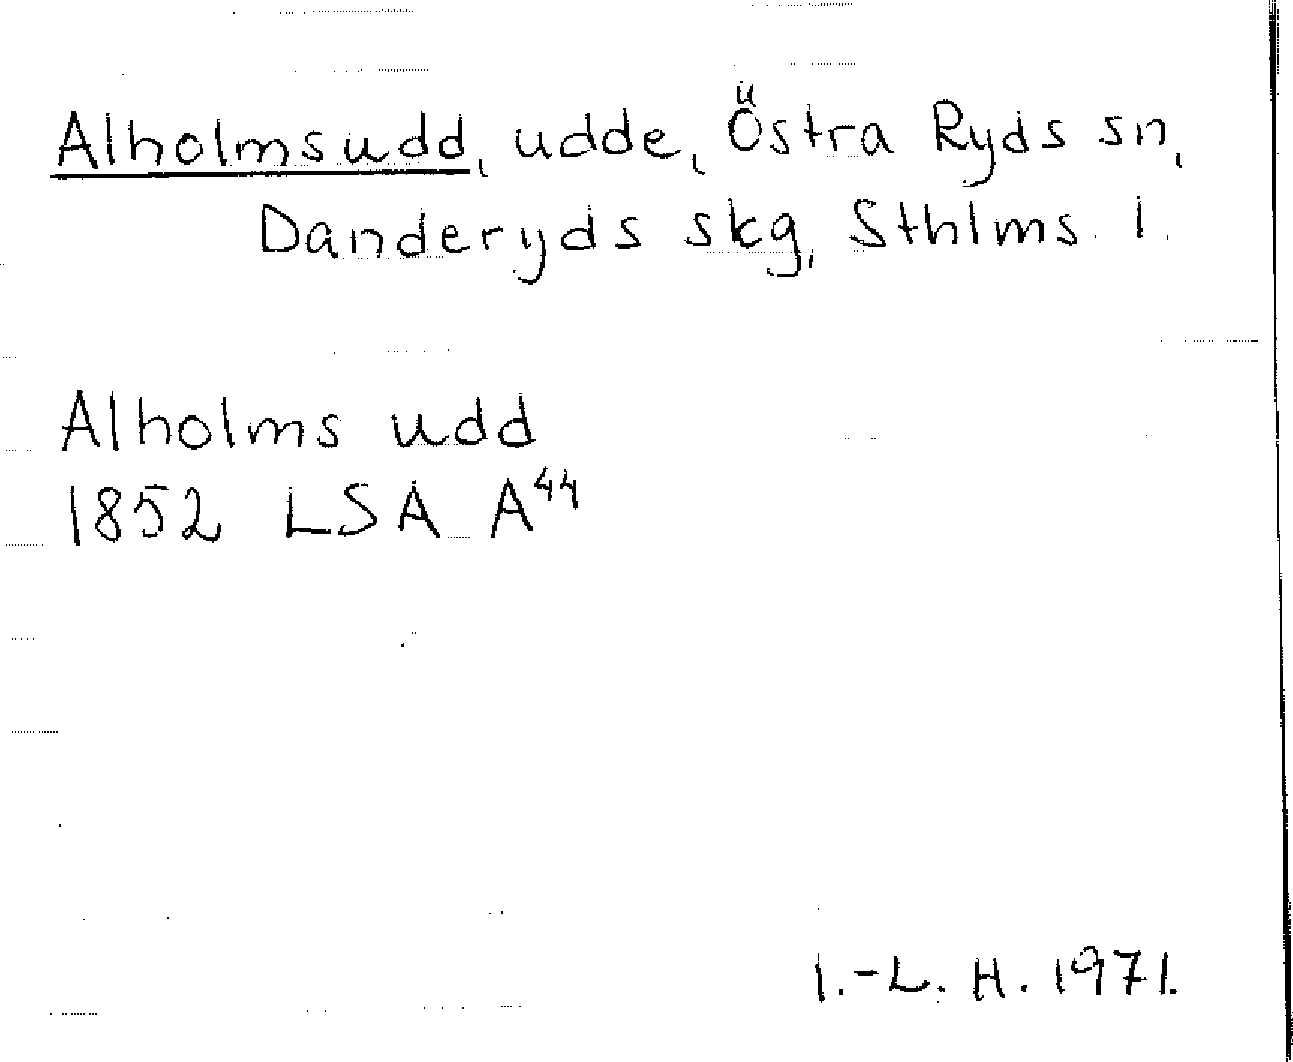 Alholmsudd, udde, Östra Ryds sn,
Danderyds skg, Sthlms l.
Alholms udd
1852 LSA A44
I.-L. H. 1971.